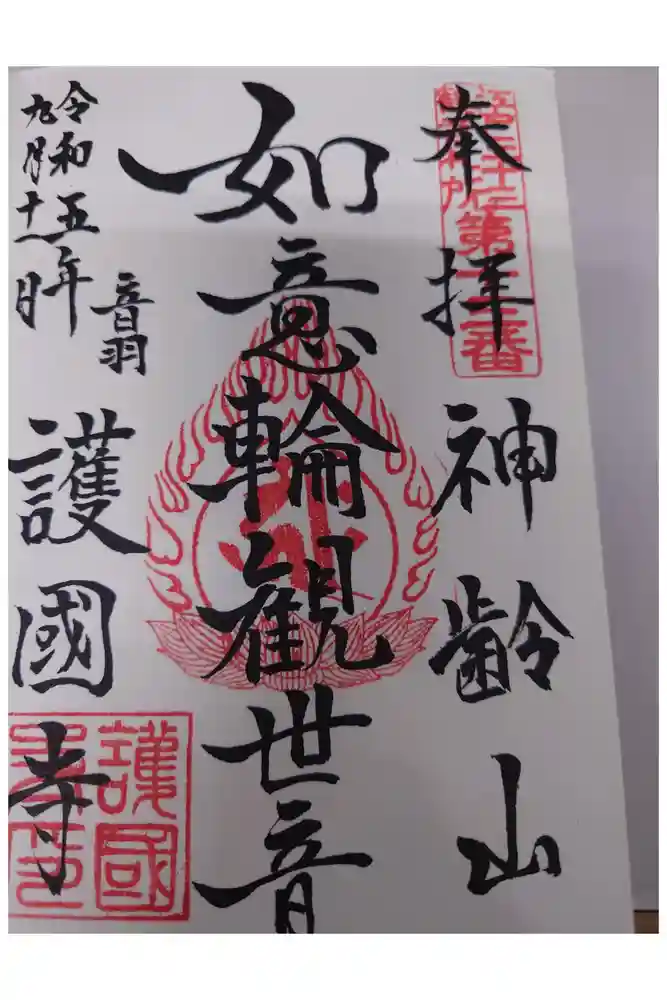 奉拝 神齢山
第十三番
如意輪観世音
音羽
護國寺
令和五年
九月十一日
護國